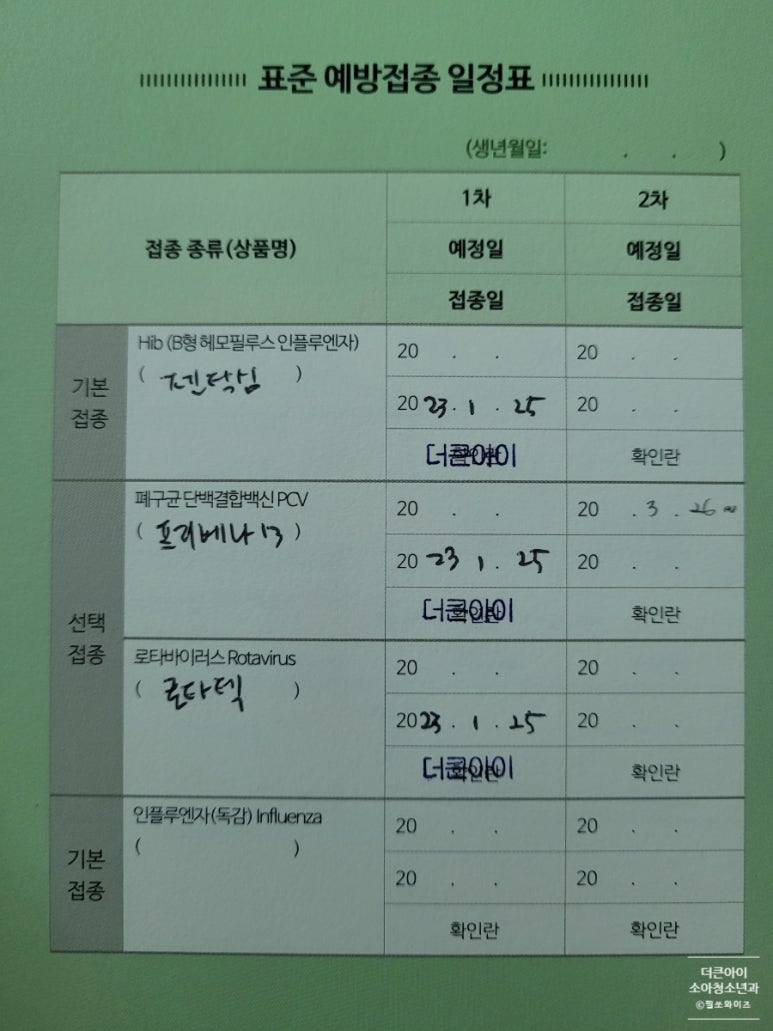 표준 예방접종 일정표
(생년월일: . . )
접종 종류(상품명)
1차
2차
예정일
예정일
접종일
접종일
기본
접종
Hib (B형 헤모필루스 인플루엔자)
( 펜탁심 )
20 . .
20 . .
20 23 . 1 . 25
20 . .
더큰아이
확인란
선택
접종
폐구균 단백결합백신 PCV
( 프리베나 13 )
20 . .
20 . 3 . 26~
20 23 1 . 25
20 . .
더큰아이
확인란
로타바이러스 Rotavirus
( 로타텍 )
20 . .
20 . .
20 23 . 1 . 25
20 . .
더큰아이
확인란
기본
접종
인플루엔자(독감) Influenza
( )
20 . .
20 . .
20 . .
20 . .
확인란
확인란
더큰아이
소아청소년과
©필쏘와이즈